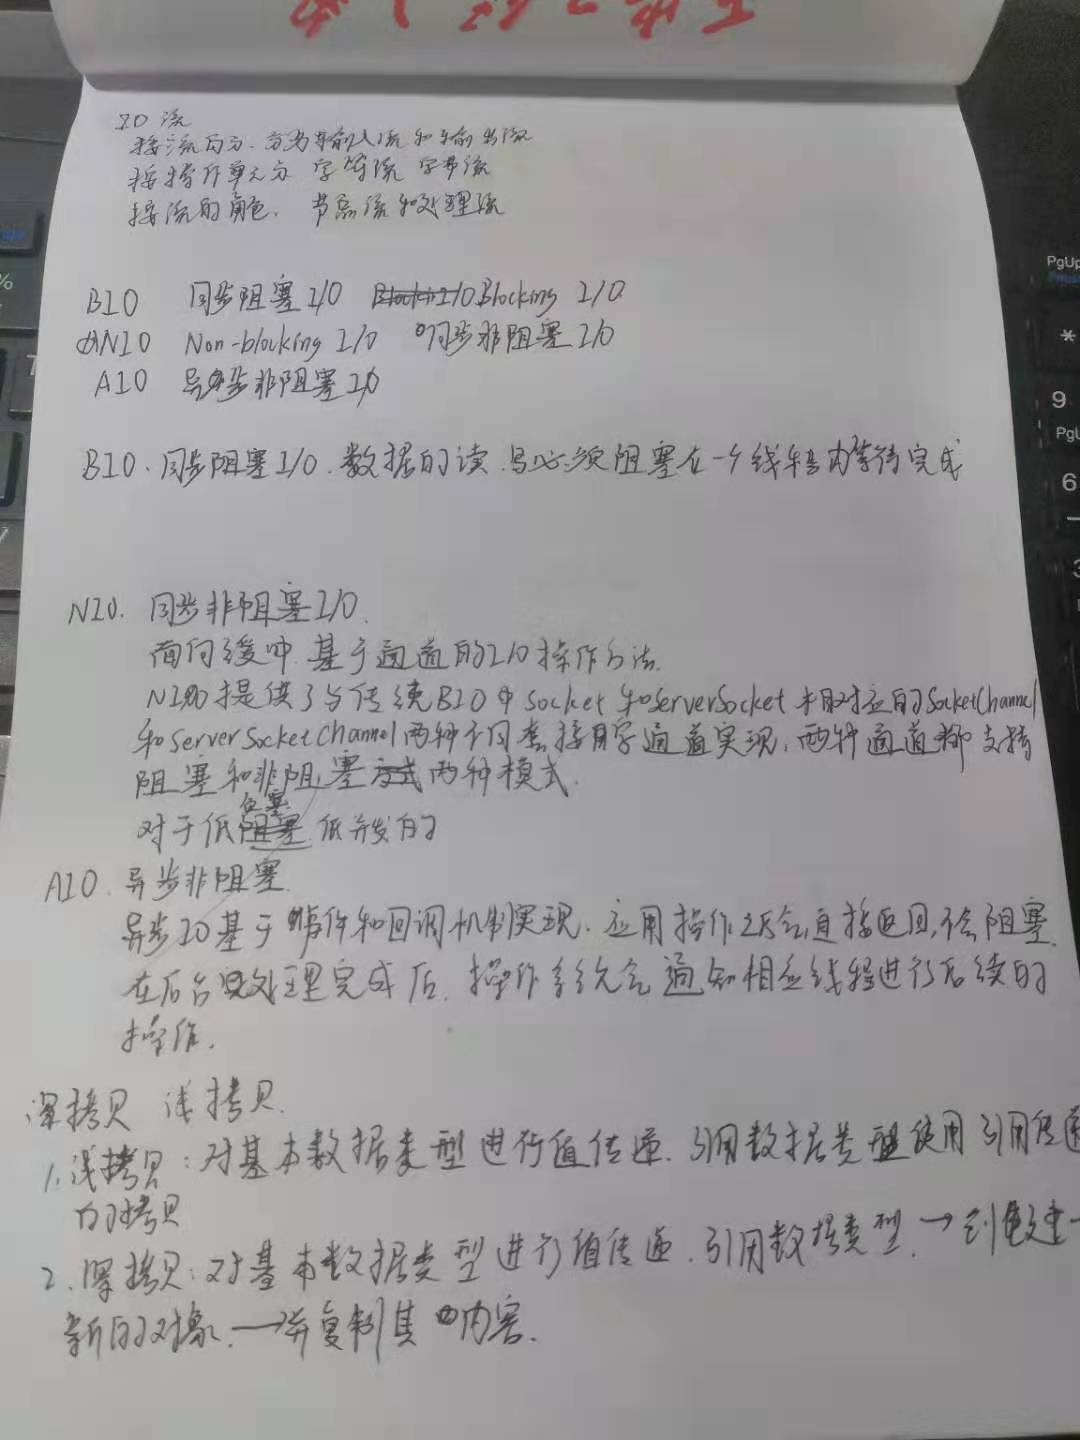 IO 流
按流向分、分为输入流和输出流
按操作单元分 字符流 字节流
按流的角色. 节点流和处理流
BIO 同步阻塞I/O Blocking I/O.
NIO Non-blocking I/O 同步非阻塞I/O
AIO 异步非阻塞I/O
BIO.同步阻塞I/O.数据的读.写必须阻塞在一个线程内等待完成
NIO. 同步非阻塞I/O.
面向缓冲.基于通道的I/O操作方法.
NIO提供了与传统BIO中Socket和ServerSocket相对应的SocketChannel
和ServerSocketChannel两种不同套接字通道实现,两种通道都支持
阻塞和非阻塞两种模式.
负载
对于低 低并发的
AIO.异步非阻塞.
异步IO基于事件和回调机制实现.应用操作之后会直接返回,不会阻塞.
在后台处理完成后.操作系统会通知相应线程进行后续的
操作.
深拷贝 浅拷贝.
1.浅拷贝:对基本数据类型进行值传递.引用数据类型使用引用传递
的拷贝
2.深拷贝:对基本数据类型进行值传递.引用数据类型.→创建一
新的对象.→并复制其内容.